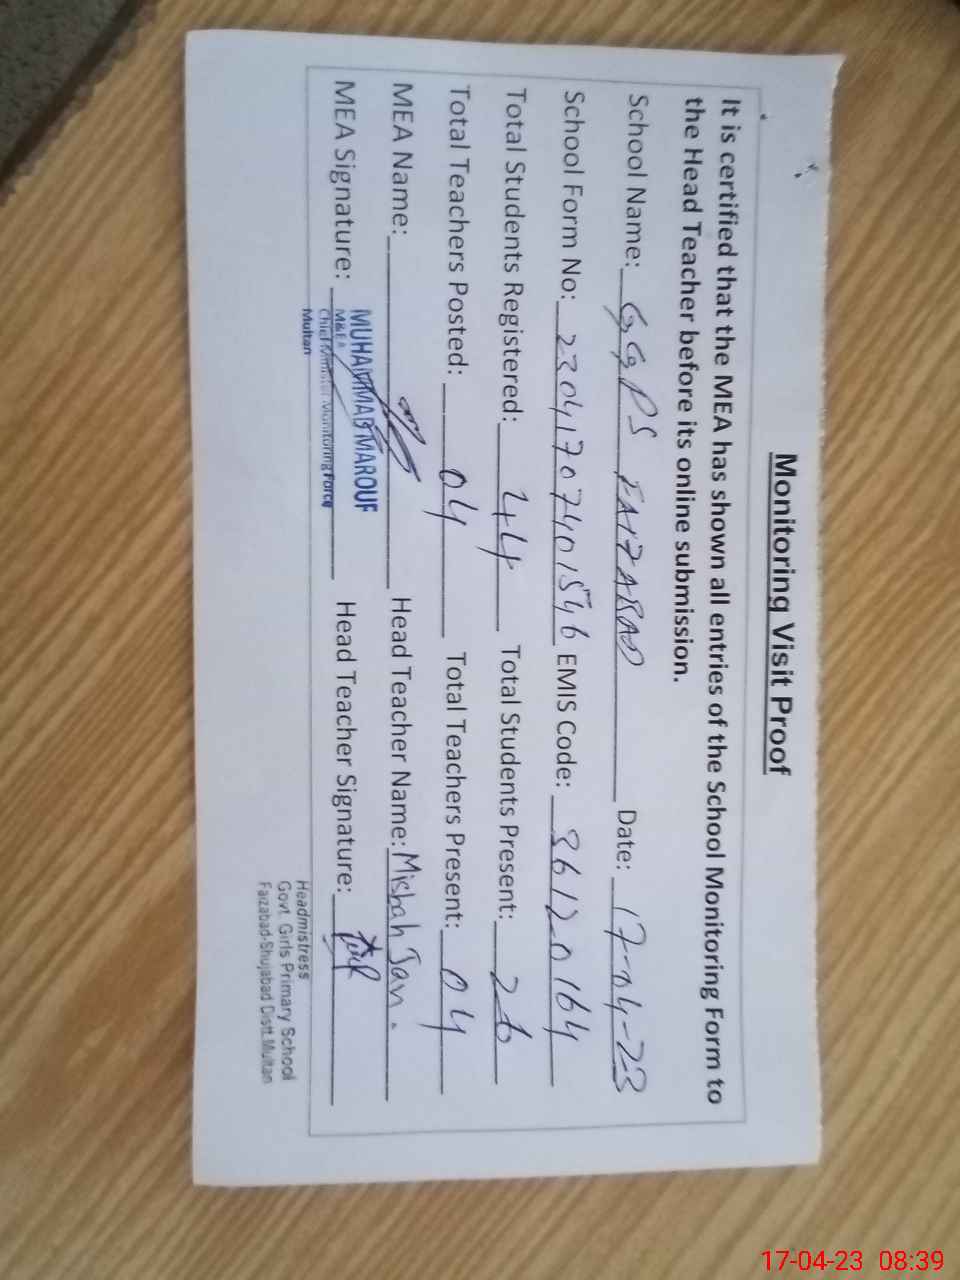 Monitoring Visit Proof
It is certified that the MEA has shown all entries of the School Monitoring Form to
the Head Teacher before its online submission.
School Name: GGPS FAIZABAD Date: 17-04-23
School Form No: 23041707401546 EMIS Code: 36120164
Total Students Registered: 44 Total Students Present: 26
Total Teachers Posted: 04 Total Teachers Present: 04
MEA Name: Head Teacher Name: Misbah Jan.
MEA Signature: Head Teacher Signature:
MUHAMMAD MAROUF
M&EA
Chief Minister Monitoring Force
Multan
Headmistress
Govt. Girls Primary School
Faizabad-Shujabad Distt. Multan
17-04-23 08:39